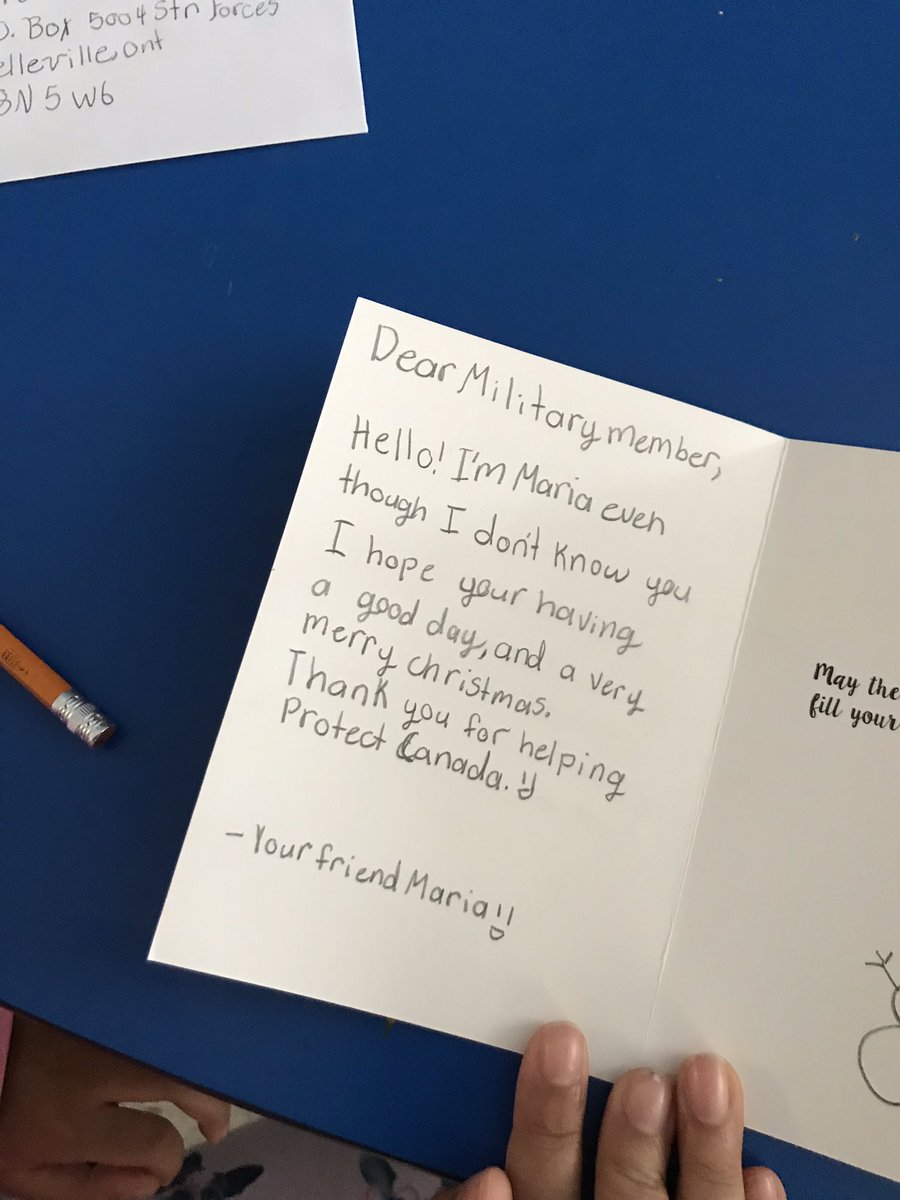 O. Box 5004 Stn Forces
elleville Ont
8N 5W6
Dear Military member,
Hello! I'm Maria even
though I don't know you
I hope your having
a good day, and a very
merry christmas.
Thank you for helping
Protect Canada. :)
- Your friend Maria :D
May the
fill your